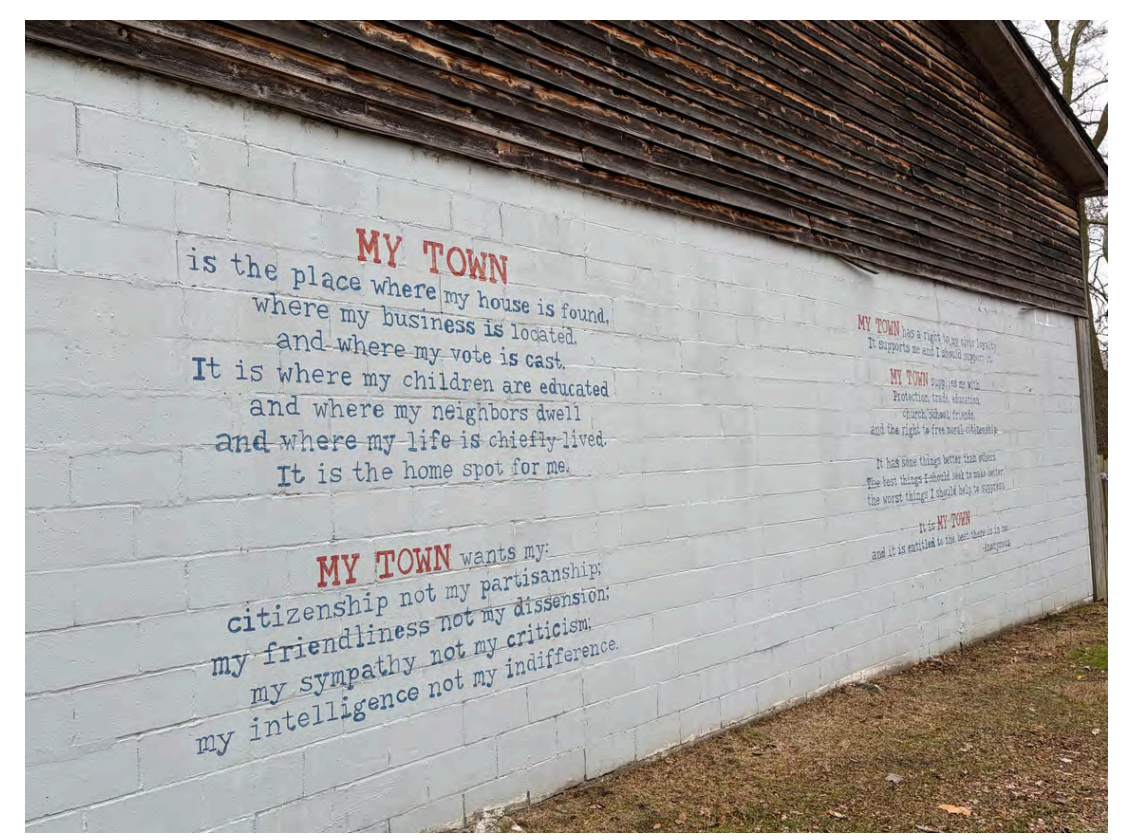 MY TOWN
is the place where my house is found,
where my business is located,
and where my vote is cast.
It is where my children are educated
and where my neighbors dwell
and where my life is chiefly lived.
It is the home spot for me.
MY TOWN wants my:
citizenship not my partisanship;
my friendliness not my dissension;
my sympathy not my criticism;
my intelligence not my indifference.
MY TOWN has a right to my civic loyalty.
It supports me and I should support it.
MY TOWN supplies me with
Protection, trade, education,
church, school, friends,
and the right to free moral citizenship.
It has some things better than others
The best things I should seek to make better
the worst things I should help to suppress.
It is MY TOWN
and it is entitled to the best there is in me.
-Anonymous